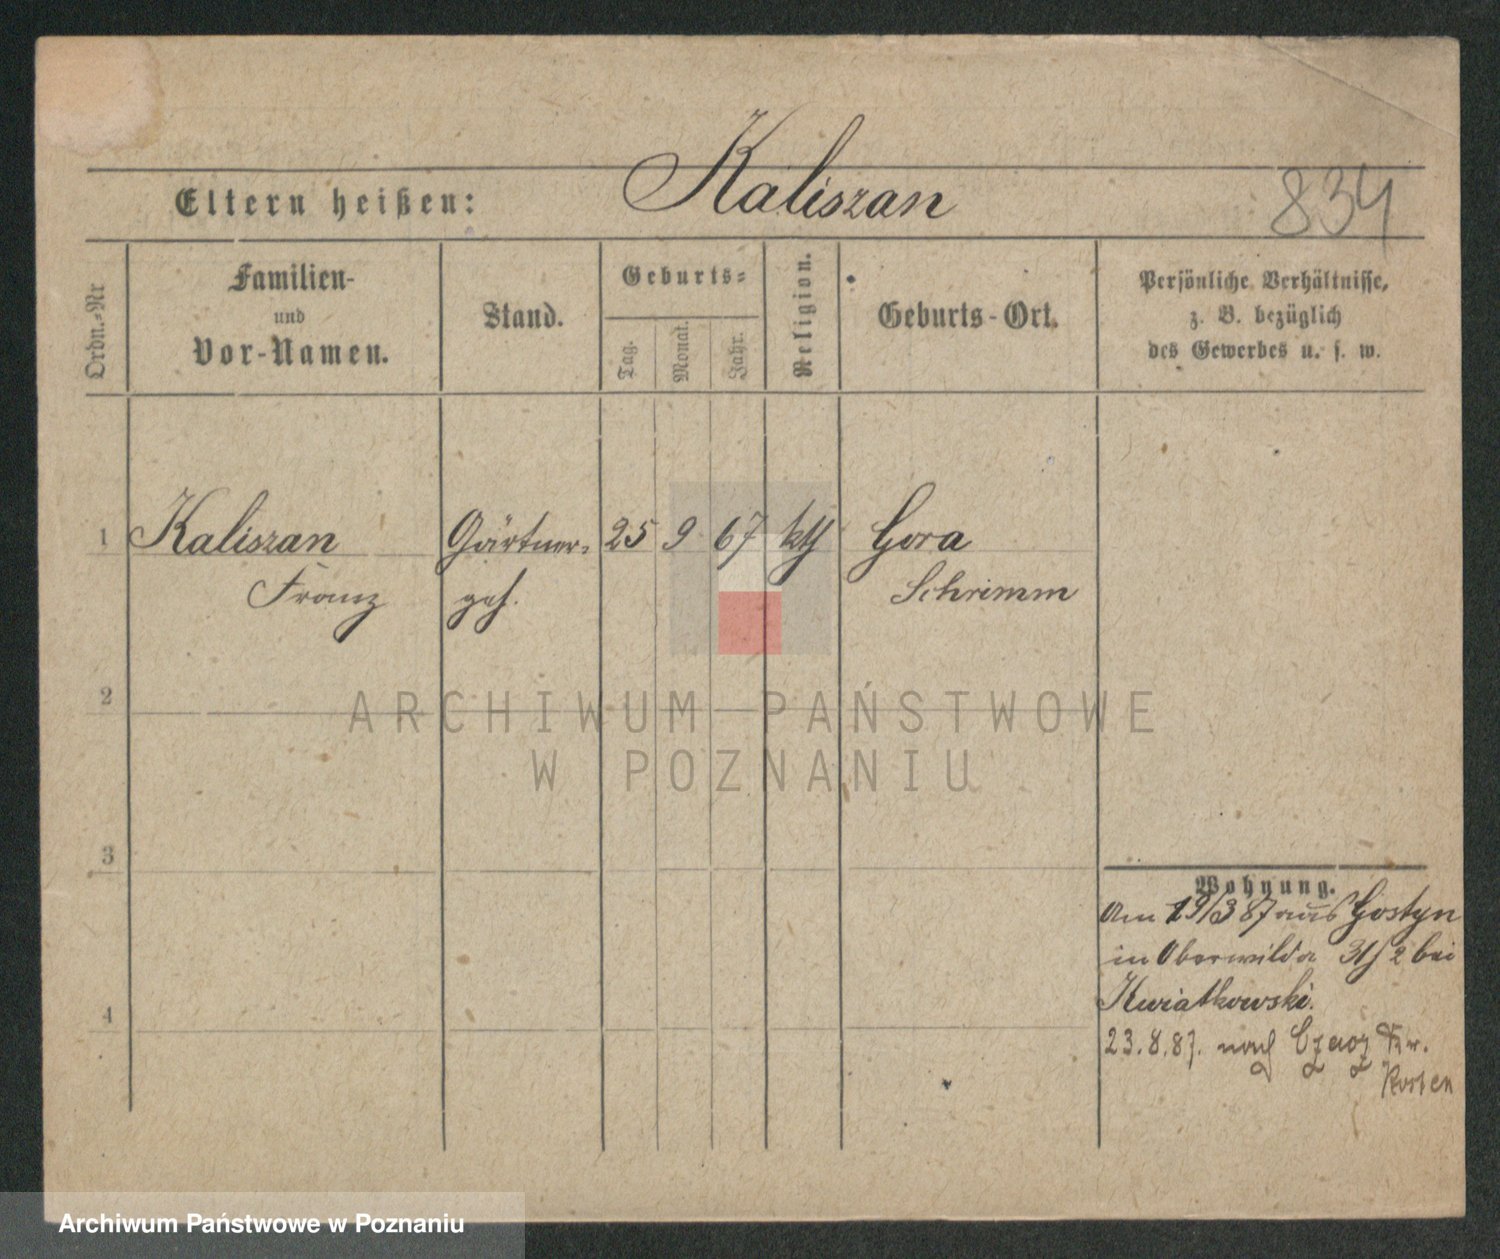 Kaliszan
834
Eltern heißen:
Ordn.-Nr
Familien-
und
Vor-Namen.
Stand.
Geburts-
Tag.
Monat.
Jahr.
Religion.
Geburts-Ort.
Persönliche Verhältnisse,
z. B. bezüglich
des Gewerbes u. s. w.
1 Kaliszan Gärtner- 25 9 67 kth Gora
Franz geh. Schrimm
2
ARCHIWUM PAŃSTWOWE
W POZNANIU
3
Wohnung.
Am 19/3 87 aus Gostyn
in Oberwilda 31/2 bei
Kwiatkowski.
4
23.8.87. nach Kr.
Kosten
Archiwum Państwowe w Poznaniu